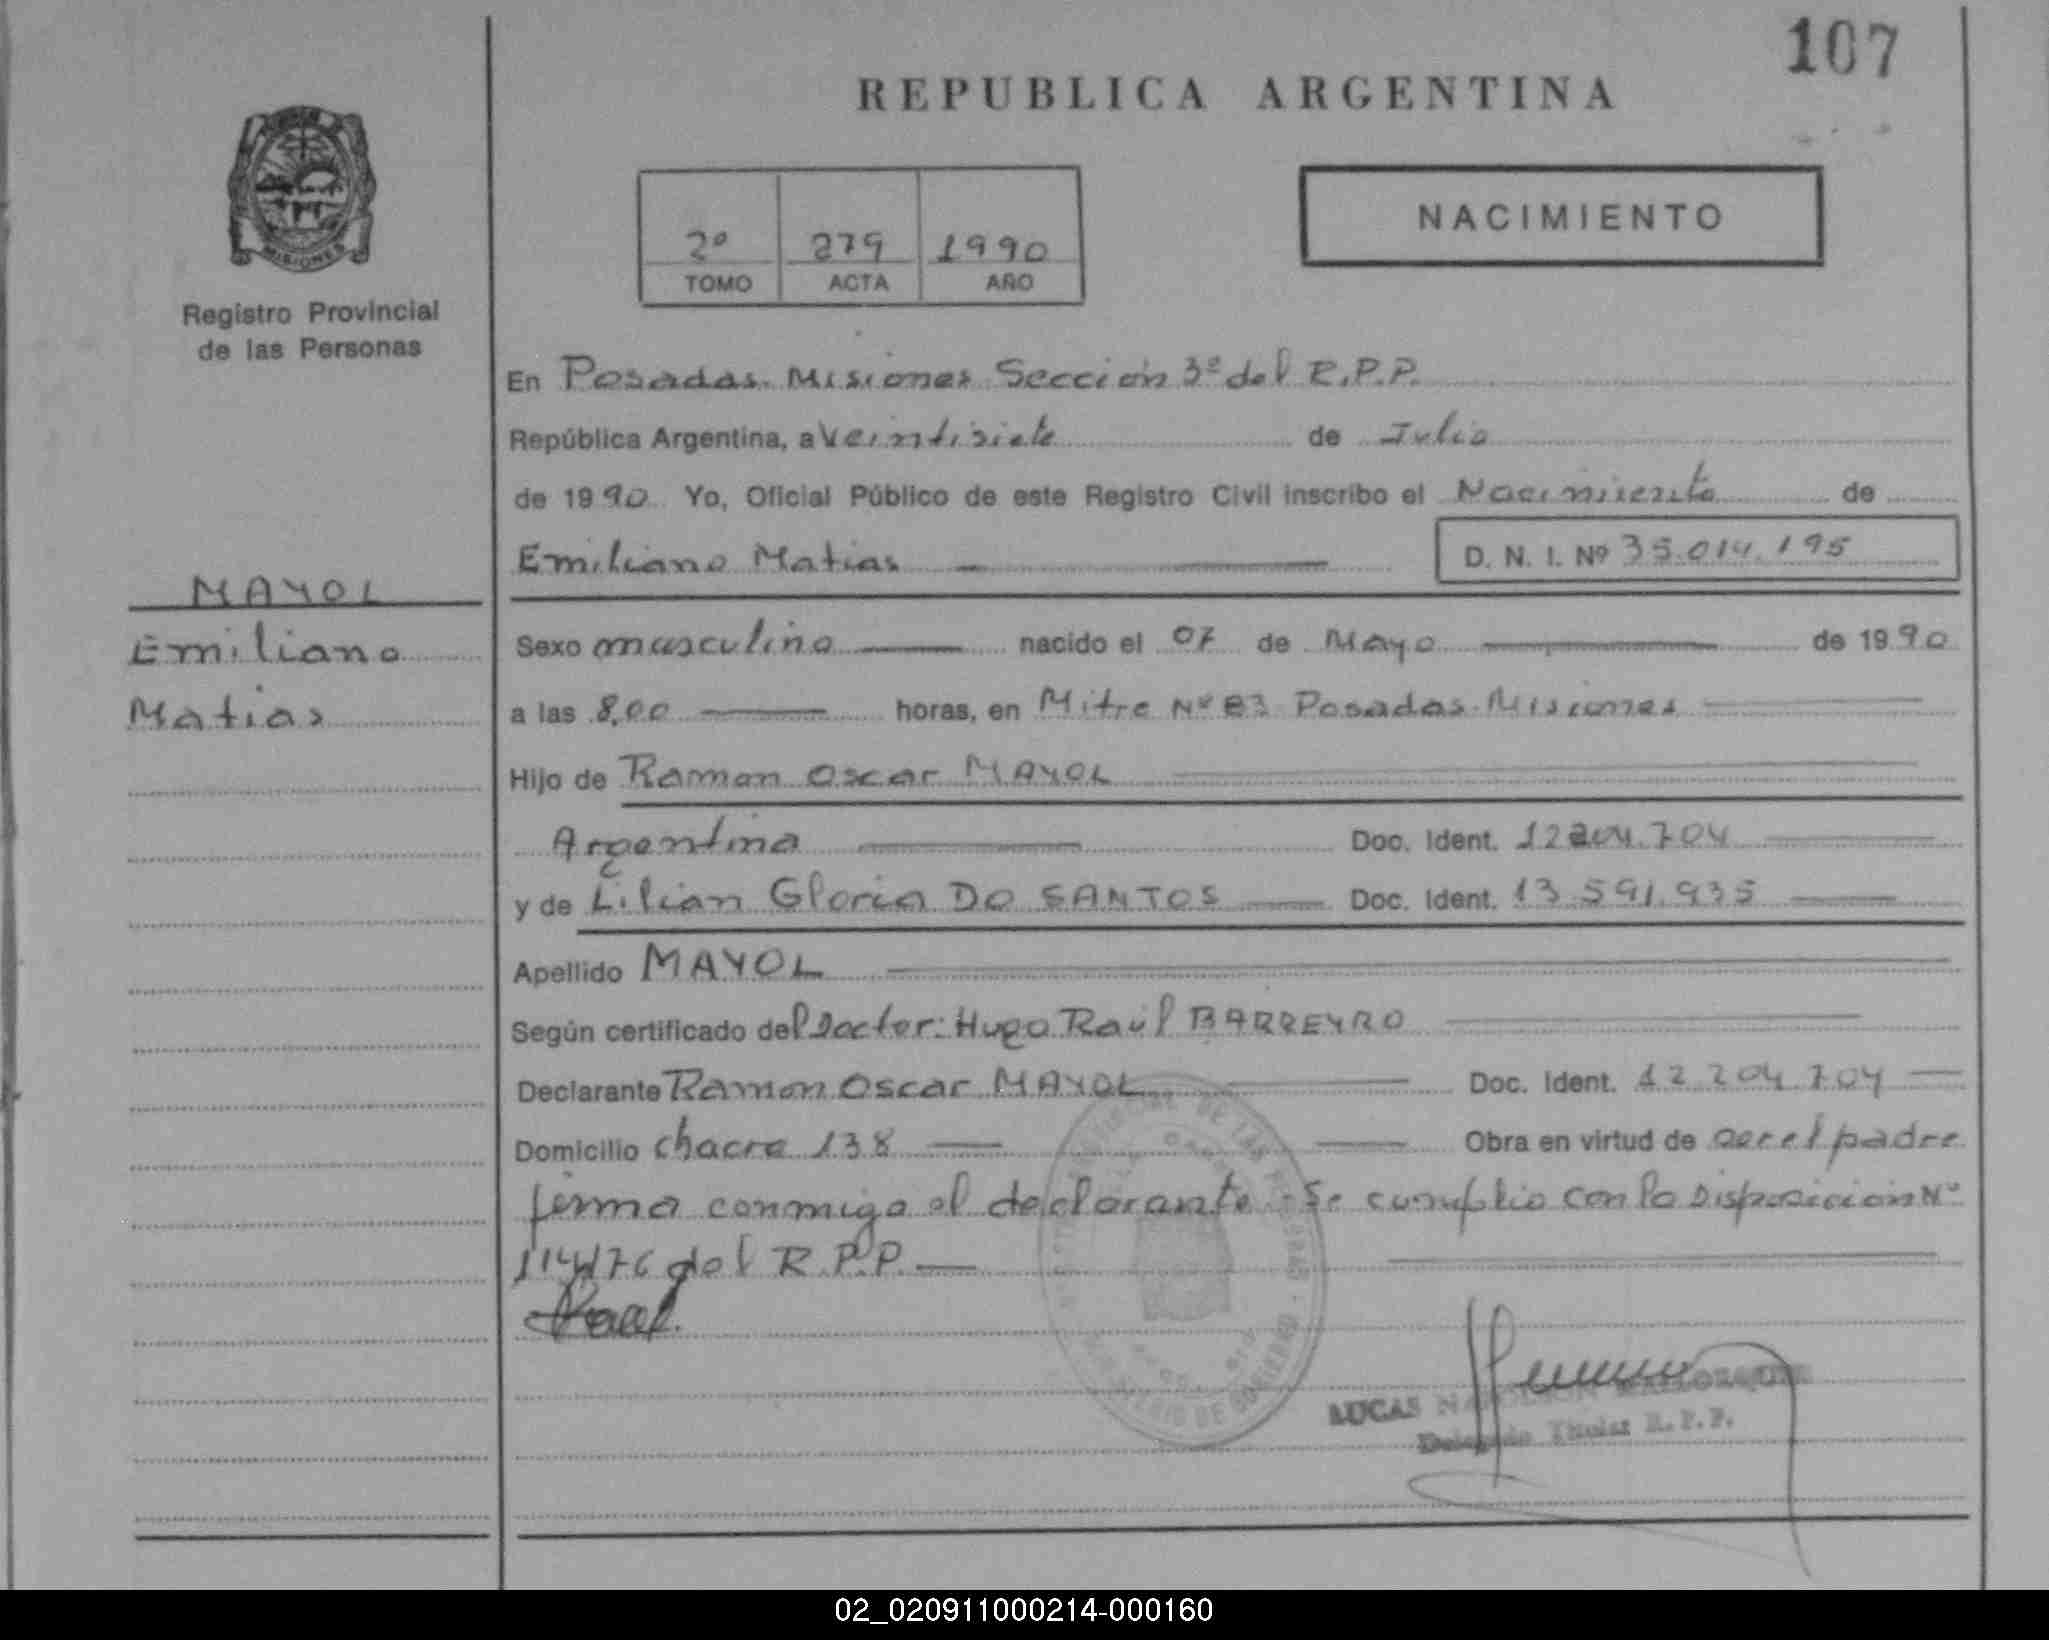 107
REPUBLICA ARGENTINA
NACIMIENTO
2º 279 1990
TOMO ACTA AÑO
MISIONES
Registro Provincial
de las Personas
En Posadas. Misiones Sección 3º del R.P.P.
República Argentina, a Veintisiete de Julio
de 1990 Yo, Oficial Público de este Registro Civil inscribo el Nacimiento de
Emiliano Matias
D. N. I. Nº 35.014.195
MAYOL
Emiliano
Matias
Sexo masculino nacido el 07 de Mayo de 1990
a las 8,00 horas, en Mitre Nº 83 Posadas. Misiones
Hijo de Ramon Oscar MAYOL
Argentina Doc. Ident. 12204.704
y de Lilian Gloria DO SANTOS Doc. Ident. 13.591.935
Apellido MAYOL
Según certificado del Doctor: Hugo Raúl BARREYRO
Declarante Ramon Oscar MAYOL Doc. Ident. 12.204.704
Domicilio chacra 138 Obra en virtud de ser el padre
firma conmigo el declarante. Se cumplio con la Disposicion Nº
114/76 del R.P.P.
LUCAS
Delegado Titular R.P.P.
02_020911000214-000160